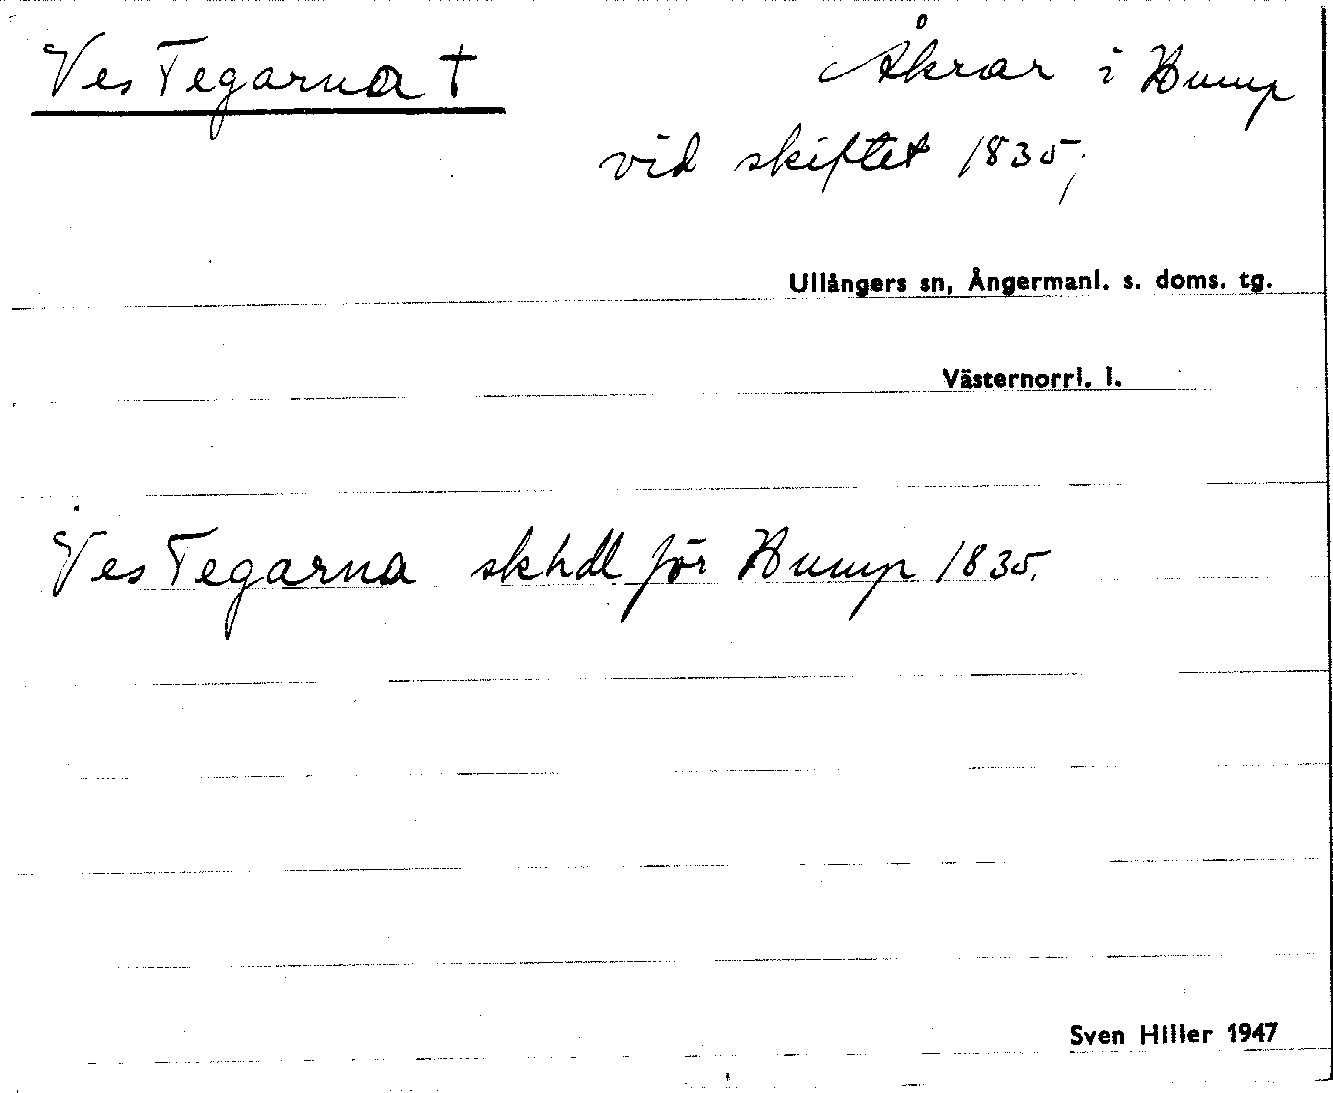 Ves Tegarna †
Åkrar i Hump
vid skiftet 1835,
Ullångers sn, Ångermanl. s. doms. tg.
Västernorrl. l.
Ves Tegarna skhdl för Hump 1835.
Sven Hiller 1947